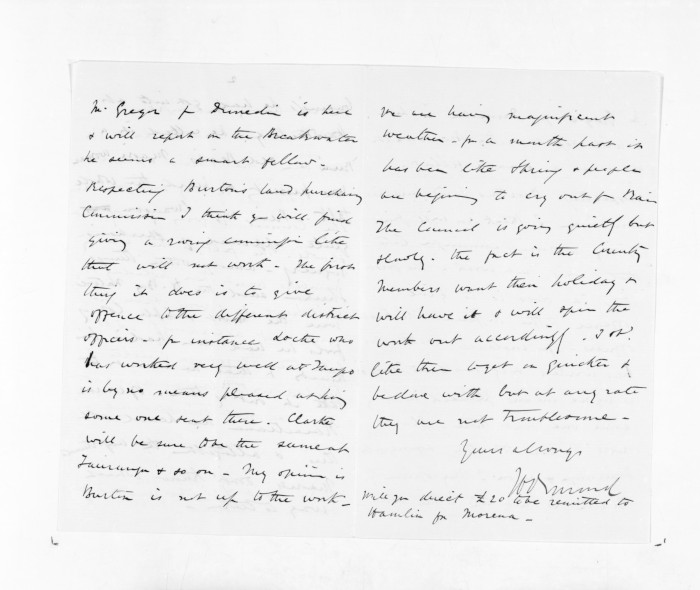 Mr Gregor fr Dunedin is here
& will report on the Breakwater
he seems a smart fellow -
Respecting Burton's land purchasing
Commission I think yo will find
giving a roving commission like
that will not work - The first
thing it does is to give
offence to the different district
officers - for instance Locke who
has worked very well at Taupo
is by no means pleased at having
some one sent there. Clarke
will be sure to be the same at
Tauranga & so on - My opinion is
Burton is not up to the work -
We are having magnificent
weather - for a month past it
has been like Spring & people
are beginning to cry out for Rain
The Council is going quietly but
slowly. The fact is the County
Members want their holiday &
will have it & will spin the
work out accordingly. I sh'd
like them to get on quicker &
be done with but at any rate
they are not troublesome -
Yours always
JD Ormond
Will you direct £20 to be remitted to
Hamlin for Morena -